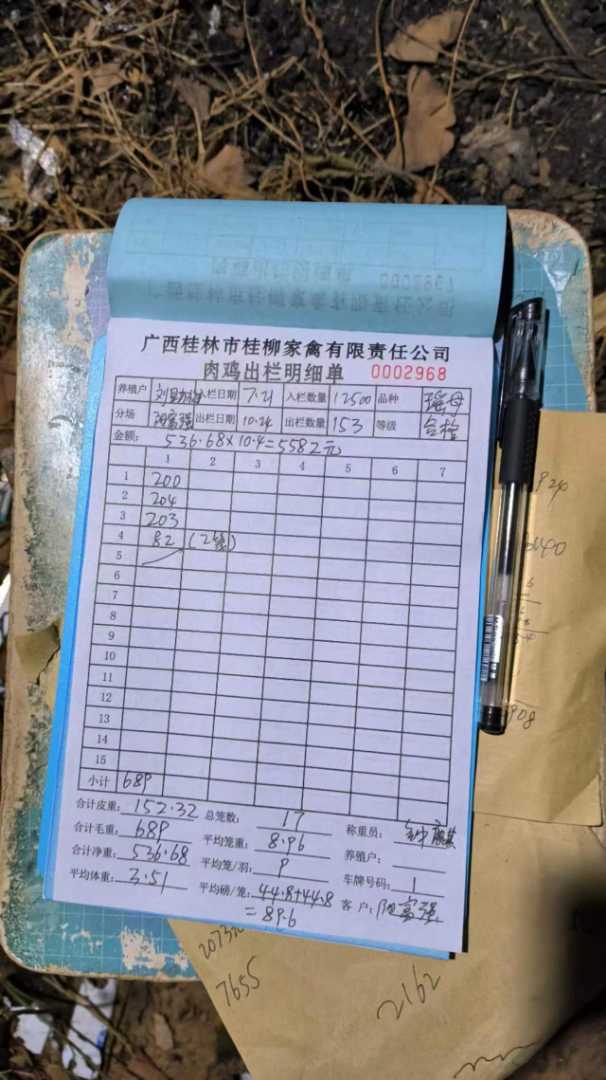 广西桂林市桂柳家禽有限责任公司
肉鸡出栏明细单 0002968
养殖户 入栏日期 7.21 入栏数量 12500 品种 瑶母
分场 阳富强 出栏日期 10.24 出栏数量 153 等级 合格
金额: 536.68×10.4=5582元
1 2 3 4 5 6 7
1 200
2 204
3 203
4 82 (2笼)
5
6
7
8
9
10
11
12
13
14
15
小计 689
合计皮重: 152.32 总笼数: 17 称重员:
合计毛重: 689 平均笼重: 8.96 养殖户:
合计净重: 536.68 平均笼/羽: 9 车牌号码: 1
平均体重: 3.51 平均磅/笼: 44.8+44.8 客户: 阳富强
=89.6
7655
2162